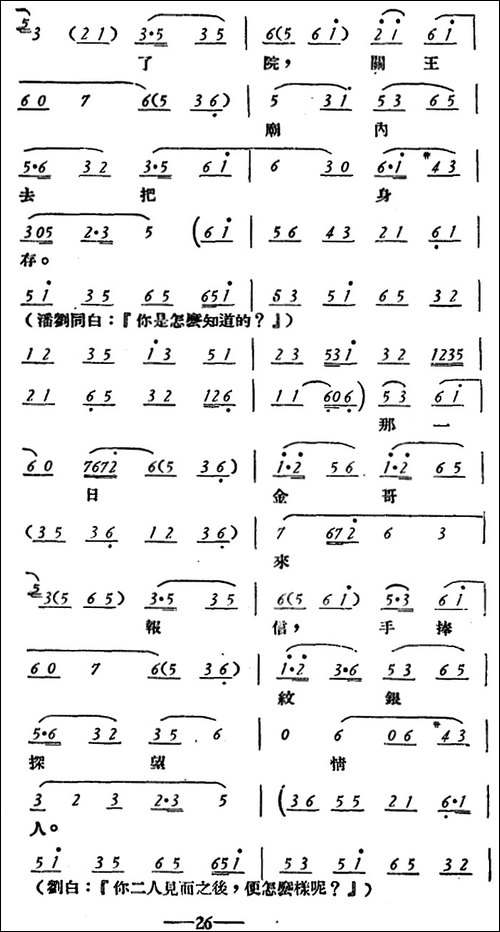 5 3 (2 1) 3·5 3 5 | 6(5 6 i) 2 i 6 i |
了 院， 關 王
6 0 7 6(5 3 6) | 5 3 i 5 3 6 5 |
廟 內
5·6 3 2 3·5 6 i | 6 3 0 6·i #4 3 |
去 把 身
3 0 5 2·3 5 (6 i | 5 6 4 3 2 1 6 1 |
存。
5 i 3 5 6 5 6 5 i | 5 3 5 i 6 5 3 2 |
（潘劉同白：『你是怎麼知道的？』）
1 2 3 5 i 3 5 1 | 2 3 5 3 i 3 2 1 2 3 5 |
2 1 6 5 3 2 1 2 6 | 1 1 6 0 6) 5 3 6 i |
那 一
6 0 7 6 7 2 6(5 3 6) | i·2 5 6 i·2 6 5 |
日 金 哥
(3 5 3 6 1 2 3 6) | 7 6 7 2 6 3 |
來
5 3(5 6 5) 3·5 3 5 | 6(5 6 i) 5·3 6 i |
報 信， 手 捧
6 0 7 6(5 3 6) | i·2 3·6 5 3 6 5 |
紋 銀
5·6 3 2 3 5 6 | 0 6 0 6 #4 3 |
探 望 情
3 2 3 2·3 5 | (3 6 5 5 2 1 6·1 |
人。
5 i 3 5 6 5 6 5 i | 5 3 5 i 6 5 3 2 |
（劉白：『你二人見而之後，便怎麼樣呢？』）
—26—